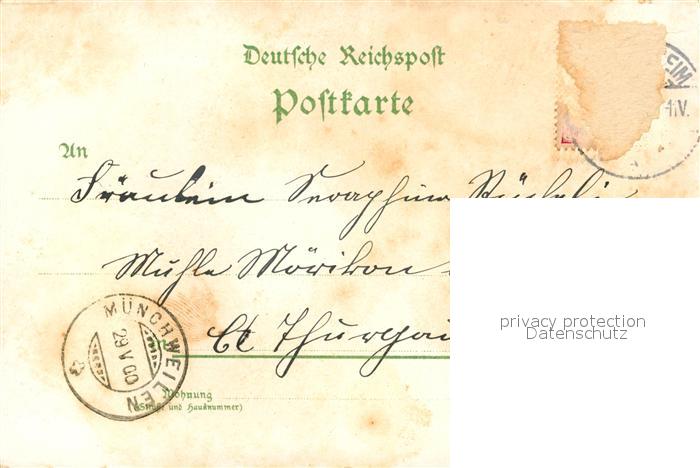 Deutsche Reichspost
Postkarte
EIM
4.V.
An
Fräulein Seraphine
Mühle Mörikon
Ct Thurgau
MÜNCHWEILEN
29 V 00
Wohnung
(Straße und Hausnummer)
privacy protection
Datenschutz